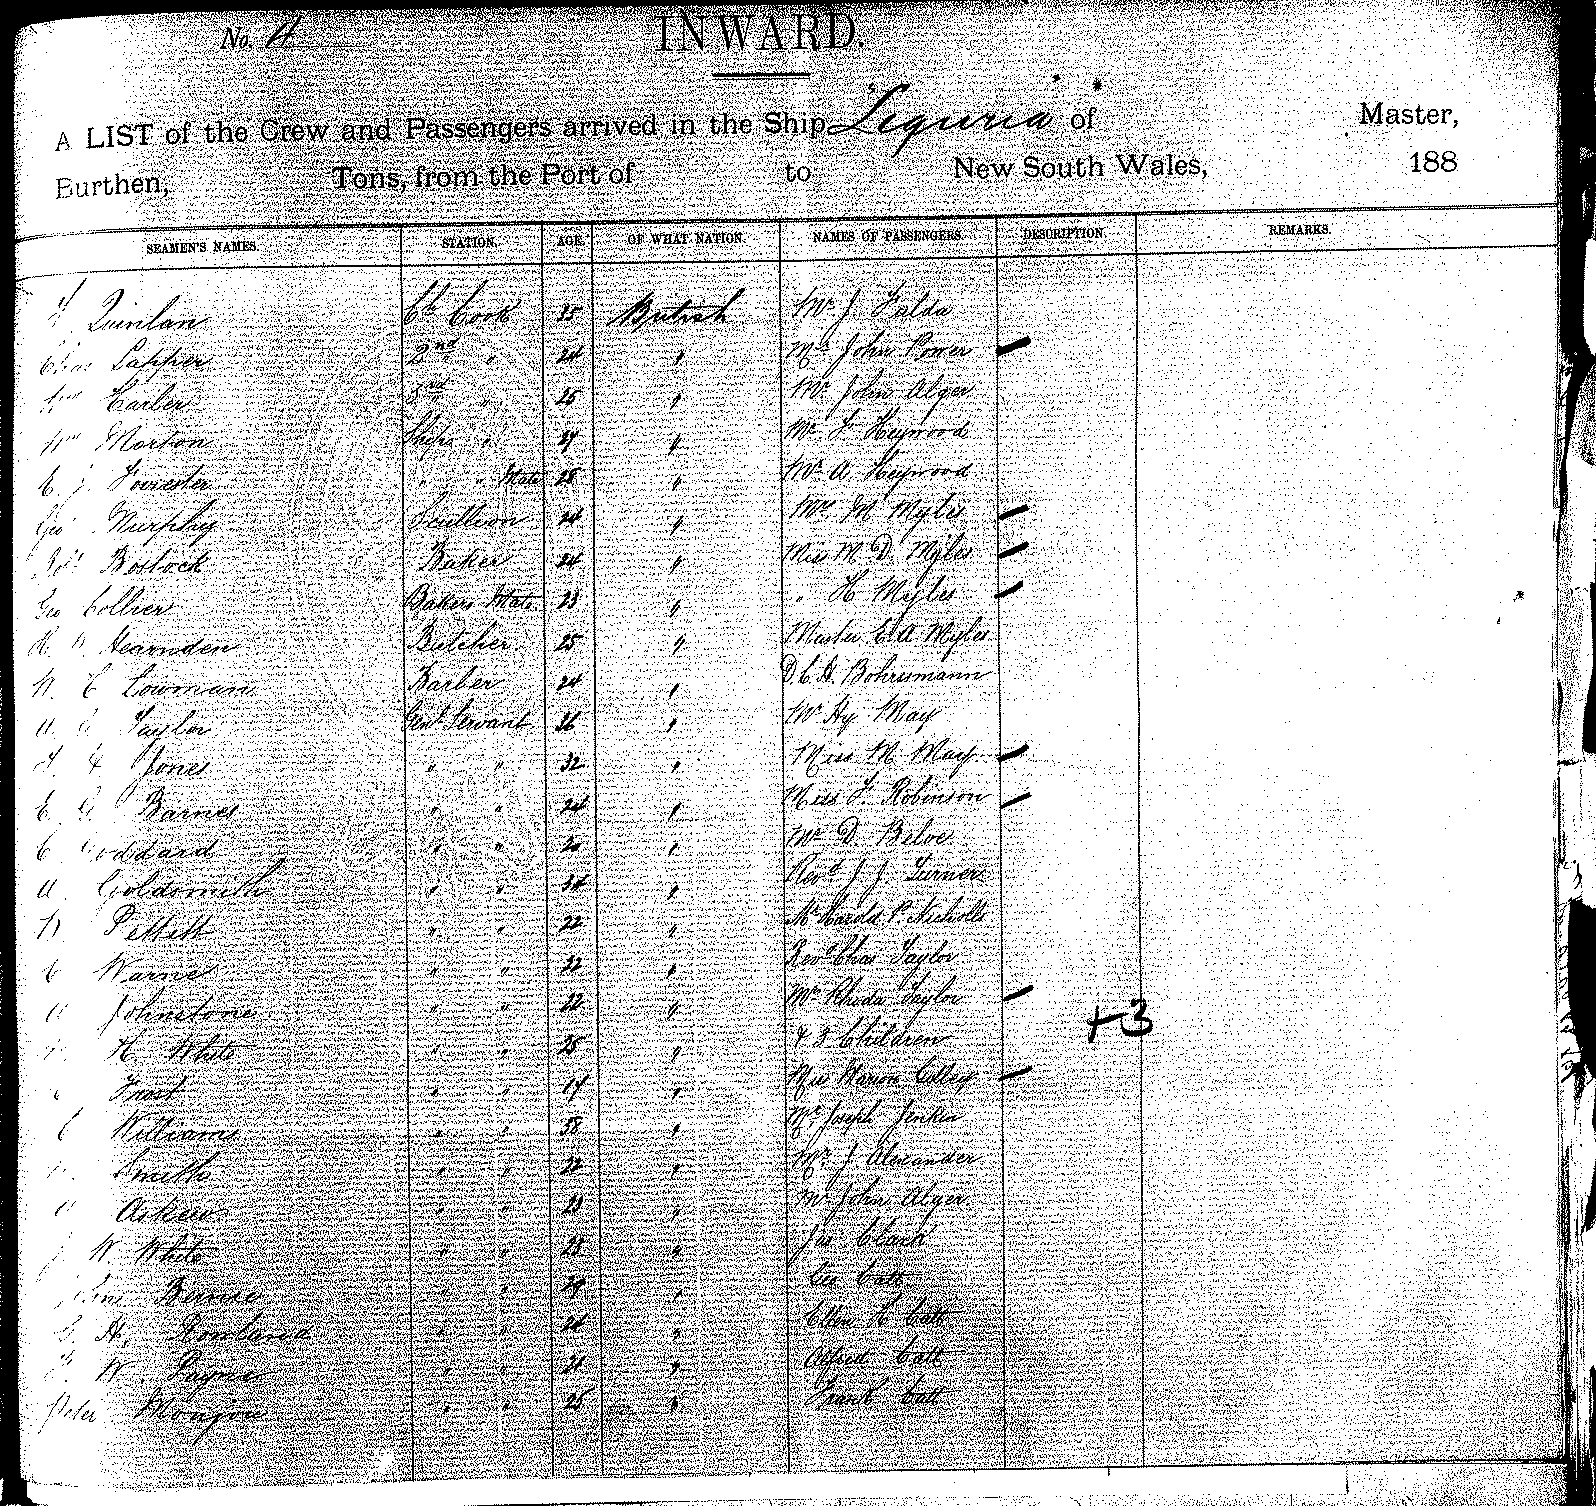 No. 4
INWARD.
A LIST of the Crew and Passengers arrived in the Ship Liguria of Master,
Burthen, Tons, from the Port of to New South Wales, 188
SEAMEN'S NAMES. STATION. AGE. OF WHAT NATION. NAMES OF PASSENGERS. DESCRIPTION. REMARKS.
Quinlan Cook 25 British Mr J
Chas Lapper 2nd " 24 " Mrs John Power
Wm 3rd " 25 " Mr John Alger
Wm Morton Ships " " Mr F Heywood
C. J. Forrester " " Mate 28 " Mr A Heywood
Geo Murphy Scullion 24 " Mrs M Myles
Robt Bostock Baker 24 " Miss M D. Myles
Geo Collier Bakers Mate 23 " " H Myles
Hearnden Butcher 25 " Master E A Myles
W. C Lowman Barber 24 " D. C. H. Bohrsmann
A Taylor Genl Servant 36 " Mr Hy May
Jones " " 32 " Miss M May
E. G Barnes " " 24 " Miss F. Robinson
C Goddard " " 20 " Mr D.
A Goldsmith " " 34 " Revd J J. Turner
W Pettitt " " 22 " Mr Harold P. Nicholls
C Warne " " 22 " Revd Chas Taylor
Johnstone " " 22 " Mrs Rhoda Taylor
H White " " 25 " & 3 Children +3
Frost " " 17 " Miss Marion
C Williams " " 38 " Mr Joseph
Smith " " 22 " Mr J Alexander
Askew " " 23 " Mr John Alger
J W White " " 23 " Jas Clark
" " 29 " Geo Catt
H. Rowland " " 24 " Ellen Catt
W. Payne " " 21 " Alfred Catt
Peter " " 25 " Frank Catt